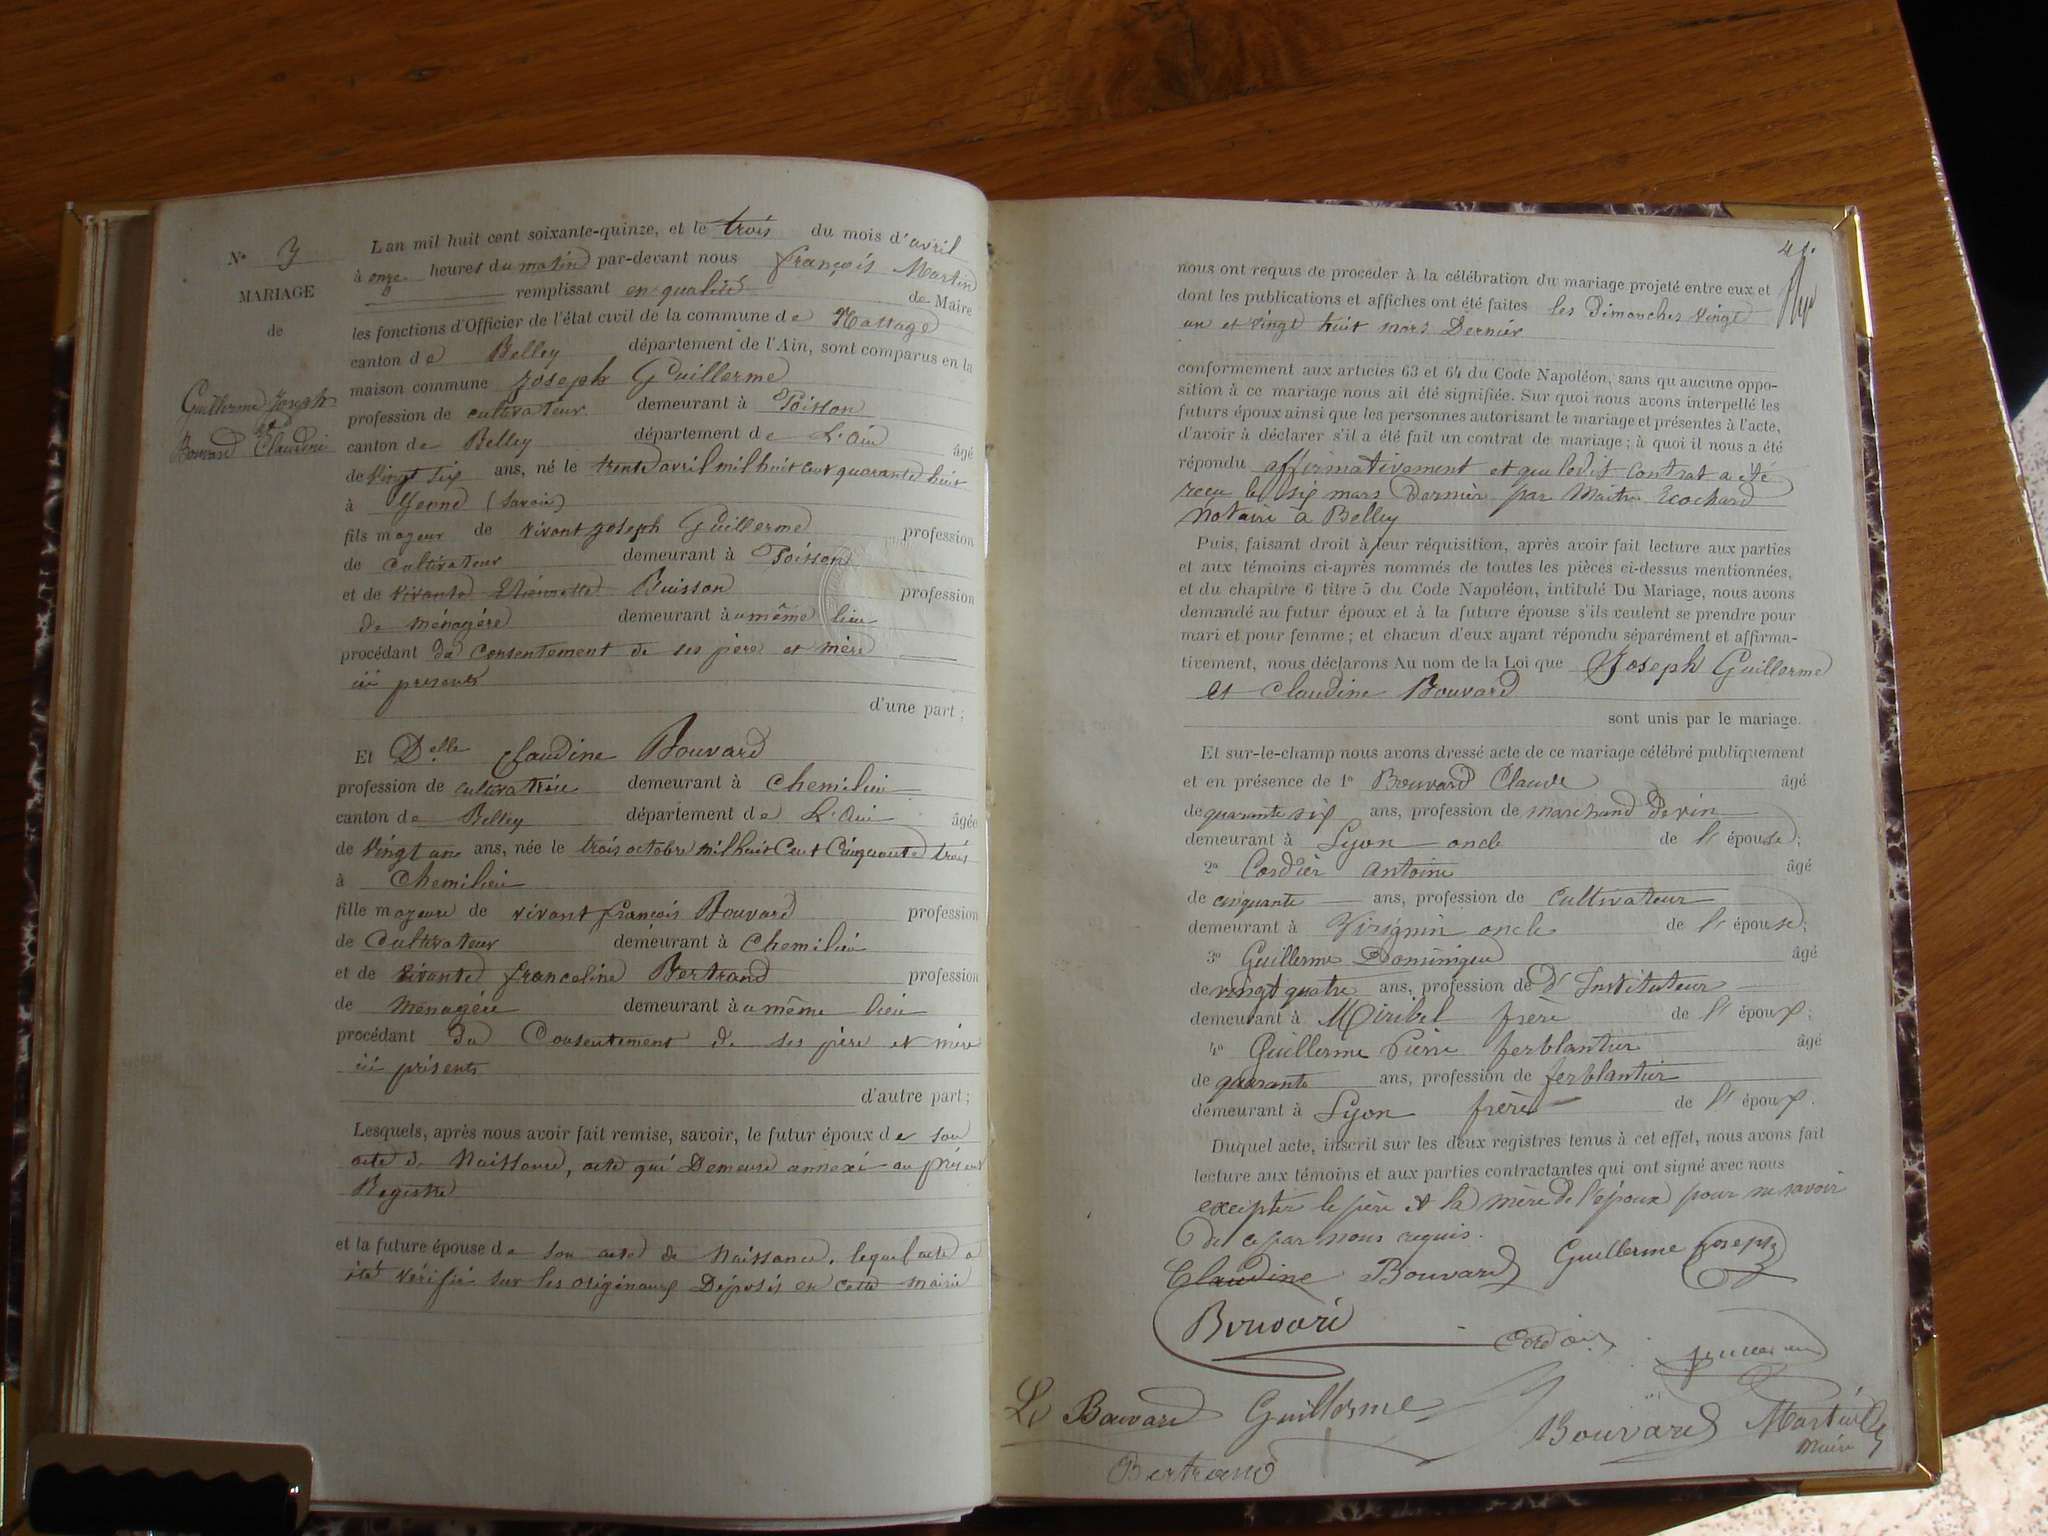 No 3
MARIAGE
de
Guillerme Joseph
et
Bouvard Claudine
L'an mil huit cent soixante-quinze, et le trois du mois d'avril
à onze heures du matin par-devant nous françois Martin
remplissant en qualité de Maire
les fonctions d'Officier de l'état civil de la commune de
canton de Belley département de l'Ain, sont comparus en la
maison commune Joseph Guillerme
profession de cultivateur demeurant à Poisson
canton de Belley département de L'Ain âgé
de vingt six ans, né le trente avril mil huit cent quarante huit
à Yenne (Savoie)
fils majeur de vivant Joseph Guillerme profession
de cultivateur demeurant à Poisson
et de vivante Etiennette Buisson profession
de ménagère demeurant au même lieu
procédant du consentement de ses père et mère
ici présents
d'une part;
Et Delle Claudine Bouvard
profession de cultivatrice demeurant à Chemilieu
canton de Belley département de L'Ain âgée
de vingt un ans, née le trois octobre mil huit Cent Cinquante trois
à Chemilieu
fille majeure de vivant françois Bouvard profession
de Cultivateur demeurant à Chemilieu
et de vivante franceline Bertrand profession
de Ménagère demeurant au même lieu
procédant du Consentement de ses père et mère
ici présents
d'autre part;
Lesquels, après nous avoir fait remise, savoir, le futur époux de son
acte de Naissance, acte qui Demeure annexé au présent
Registre
et la future épouse de son acte de Naissance, lequel acte a
été vérifié sur les originaux Déposés en cette mairie
41.
nous ont requis de procéder à la célébration du mariage projeté entre eux et
dont les publications et affiches ont été faites les Dimanches vingt
un et vingt huit mars Dernier
conformement aux articles 63 et 64 du Code Napoléon, sans qu'aucune oppo-
sition à ce mariage nous ait été signifiée. Sur quoi nous avons interpellé les
futurs époux ainsi que les personnes autorisant le mariage et présentes à l'acte,
d'avoir à déclarer s'il a été fait un contrat de mariage; à quoi il nous a été
répondu affirmativement et que ledit contrat a été
reçu le six mars Dernier par Maitre
notaire à Belley
Puis, faisant droit à leur réquisition, après avoir fait lecture aux parties
et aux témoins ci-après nommés de toutes les pièces ci-dessus mentionnées,
et du chapitre 6 titre 5 du Code Napoléon, intitulé Du Mariage, nous avons
demandé au futur époux et à la future épouse s'ils veulent se prendre pour
mari et pour femme; et chacun d'eux ayant répondu séparément et affirma-
tivement, nous déclarons Au nom de la Loi que Joseph Guillerme
et Claudine Bouvard
sont unis par le mariage.
Et sur-le-champ nous avons dressé acte de ce mariage célébré publiquement
et en présence de 1o Bouvard Claude âgé
de quarante six ans, profession de marchand de vin
demeurant à Lyon oncle de l'épouse;
2o Cordier Antoine âgé
de cinquante ans, profession de cultivateur
demeurant à Virignin oncle de l'épouse;
3o Guillerme Dominique âgé
de vingt quatre ans, profession de d'Instituteur
demeurant à Miribel frère de l'époux;
4o Guillerme Pierre ferblantier âgé
de quarante ans, profession de ferblantier
demeurant à Lyon frère de l'époux.
Duquel acte, inscrit sur les deux registres tenus à cet effet, nous avons fait
lecture aux témoins et aux parties contractantes qui ont signé avec nous
excepter le père et la mère de l'époux pour ne savoir
De ce par nous requis.
Claudine Bouvard Guillerme Joseph
Bouvard Cordier
Bouvard Guillerme Bouvard Martin
Maire
Bertrand